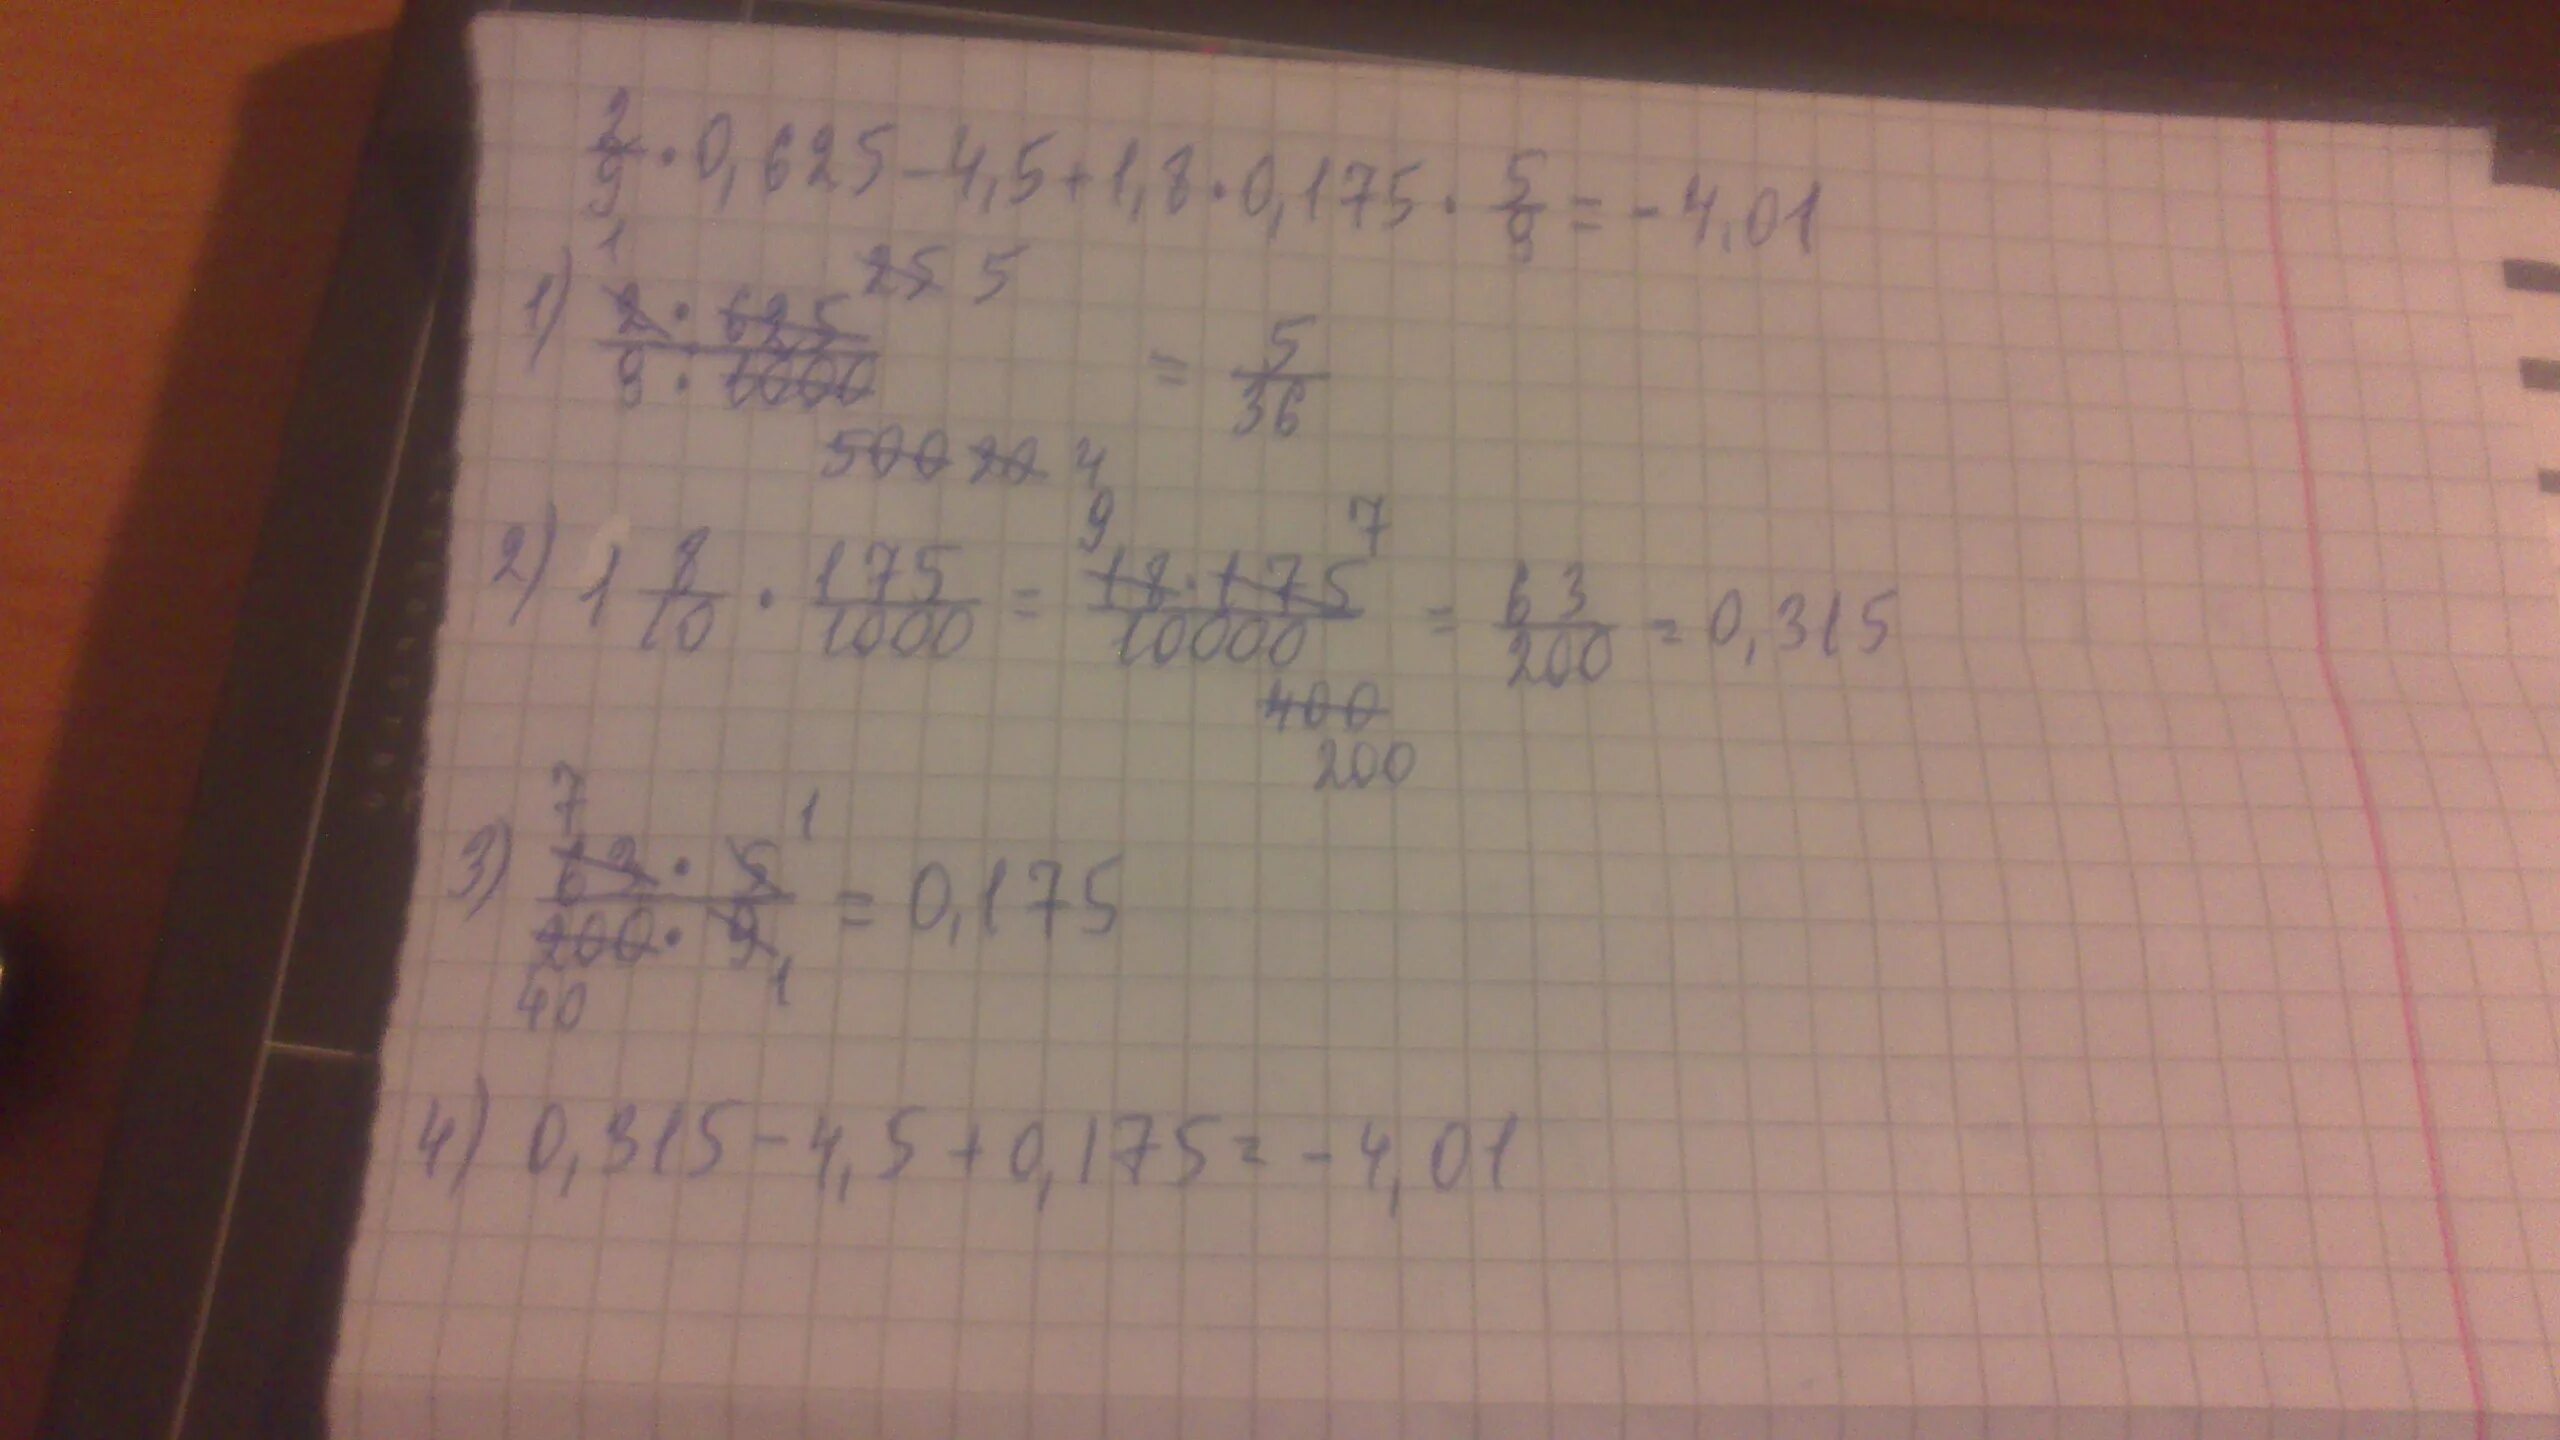 2/9 · 0,625 - 4,5 + 1,8 · 0,175 · 5/9 = - 4,01
1) 2 · 625 / 9 · 1000 = 5/36
1 25 5
500 20 4
2) 1 8/10 · 175/1000 = 18 · 175 / 10000 = 63/200 = 0,315
9 7
400
200
3) 63 · 5 / 200 · 9 = 0,175
7 1
40 1
4) 0,315 - 4,5 + 0,175 = - 4,01